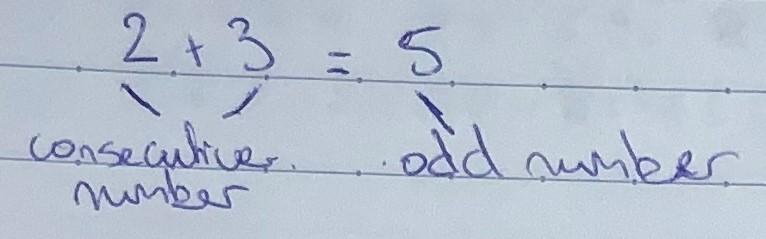 2 + 3 = 5
consecutive odd number
number